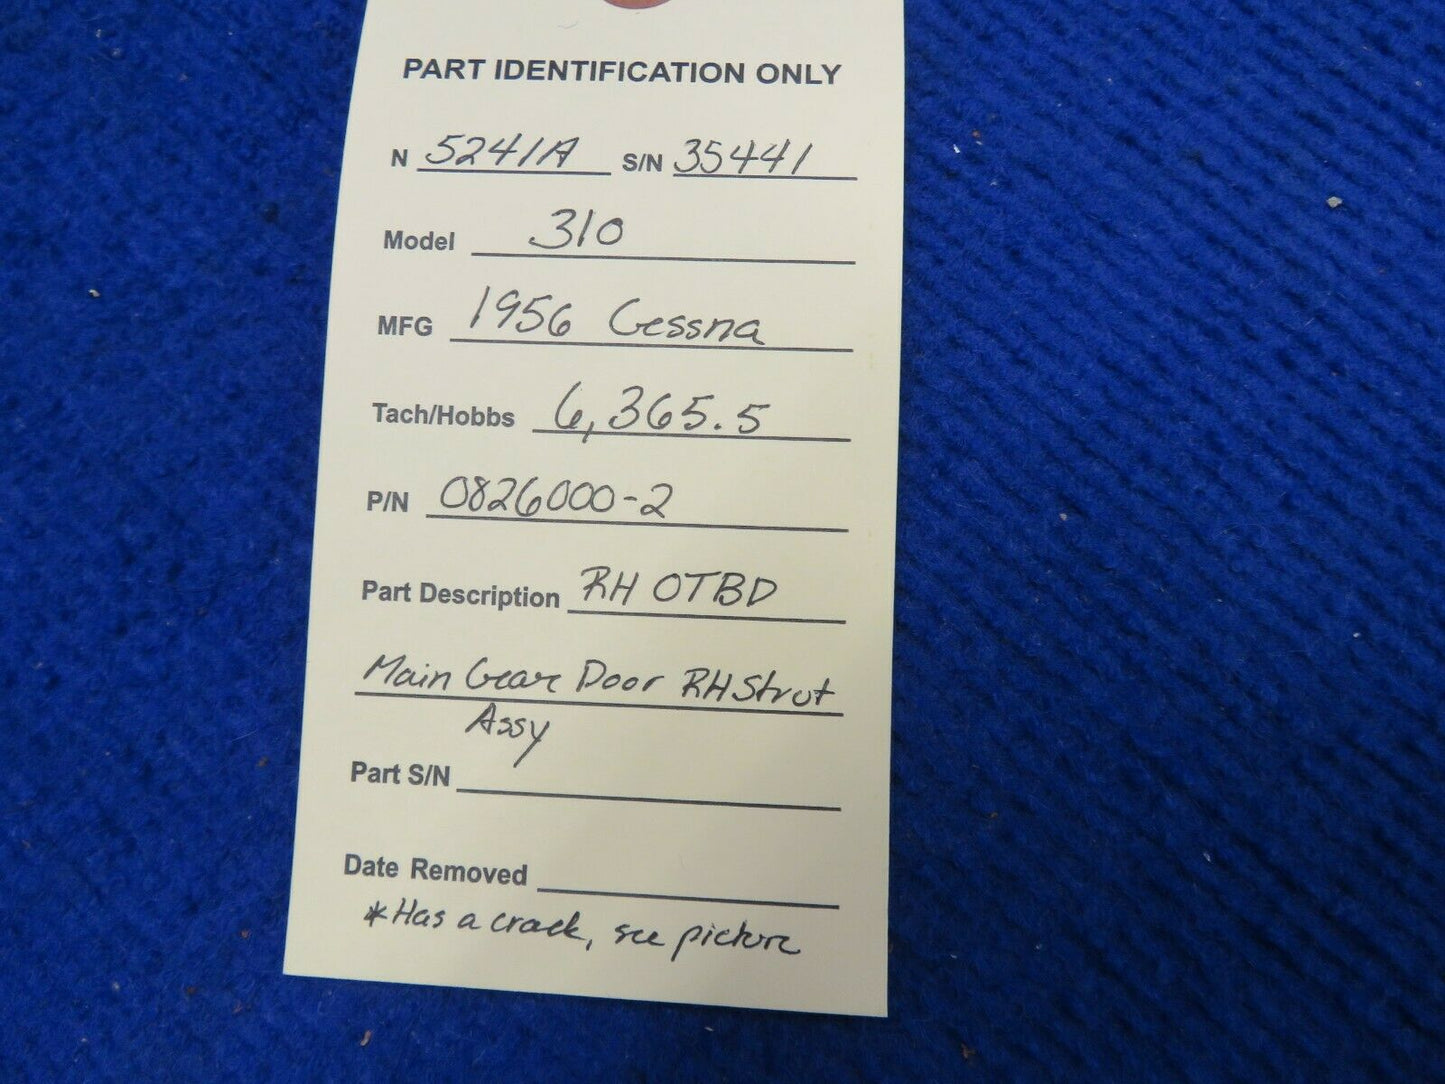 PART IDENTIFICATION ONLY
N 5241A S/N 35441
Model 310
MFG 1956 Cessna
Tach/Hobbs 6,365.5
P/N 0826000-2
Part Description RH OTBD
Main Gear Door RH Strut
Assy
Part S/N
Date Removed
*Has a crack, see picture